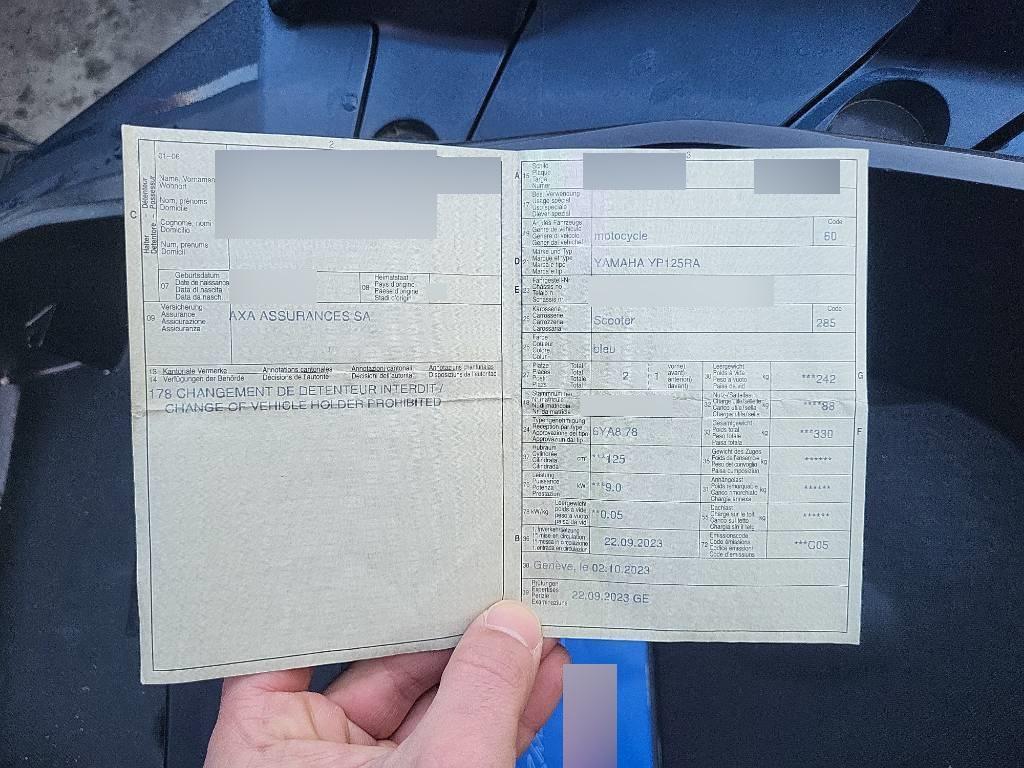 2
01-06
Name, Vornamen
Wohnort
Nom, prénoms
Domicile
Cognome, nomi
Domicilio
Num, prenums
Domicil
C
Halter - Détenteur
Detentore - Possessur
07
Geburtsdatum
Date de naissance
Data di nascita
Data da nasch.
08
Heimatstaat
Pays d'origine
Paese d'origine
Stadi d'origin
09
Versicherung
Assurance
Assicurazione
Assicuranza
AXA ASSURANCES SA
13 Kantonale Vermerke Annotations cantonales Annotazioni cantonali Annotaziuns chantunalas
14 Verfügungen der Behörde Décisions de l'autorité Decisioni dell'autorità Disposiziuns da l'autoritad
178 CHANGEMENT DE DETENTEUR INTERDIT /
CHANGE OF VEHICLE HOLDER PROHIBITED
3
A 15
Schild
Plaque
Targa
Numer
17
Bes. Verwendung
Usage spécial
Uso speciale
Diever spezial
19
Art des Fahrzeugs
Genre de véhicule
Genere di veicolo
Gener dal vehichel
motocycle
Code
60
D 21
Marke und Typ
Marque et type
Marca e tipo
Marca e tip
YAMAHA YP125RA
E 23
Fahrgestell-Nr.
Châssis no
Telaio n.
Schassis nr.
25
Karosserie
Carrosserie
Carrozzeria
Carossaria
Scooter
Code
285
26
Farbe
Couleur
Colore
Colur
bleu
27
Plätze Total
Places Total
Posti Totale
Plazs Total
2
1
vorne)
avant)
anteriori)
davant)
30
Leergewicht
Poids à vide
Peso a vuoto
Paisa da vid
kg
***242
G
18
Stammnummer
No matricule
N. di matricola
Nr. da matricla
32
Nutz-/Sattellast
Charge utile/sellette
Carico utile/sella
Chargia utila/sella
kg
****88
24
Typengenehmigung
Réception par type
Approvazione del tipo
Approvaziun dal tip
6YA8 78
33
Gesamtgewicht
Poids total
Peso totale
Paisa totala
kg
***330
F
37
Hubraum
Cylindrée
Cilindrata
Cilindrada
cm³
***125
35
Gewicht des Zuges
Poids de l'ensemble
Peso del convoglio
Paisa cumposiziun
kg
******
76
Leistung
Puissance
Potenza
Prestaziun
kW
***9.0
31
Anhängelast
Poids remorquable
Carico rimorchiato
Chargia annexa
kg
******
78 kW/kg
Leergewicht
poids à vide
peso a vuoto
paisa da vid
**0.05
55
Dachlast
Charge sur le toit
Carico sul tetto
Chargia sin il tetg
kg
******
B 36
1. Inverkehrsetzung
1re mise en circulation
1a messa in circolazione
1. entrada en circulaziun
22.09.2023
72
Emissionscode
Code émissions
Codice emissioni
Code d'emissiuns
***G05
38 Genève, le 02.10.2023
39
Prüfungen
Expertises
Perizie
Examinaziuns
22.09.2023 GE